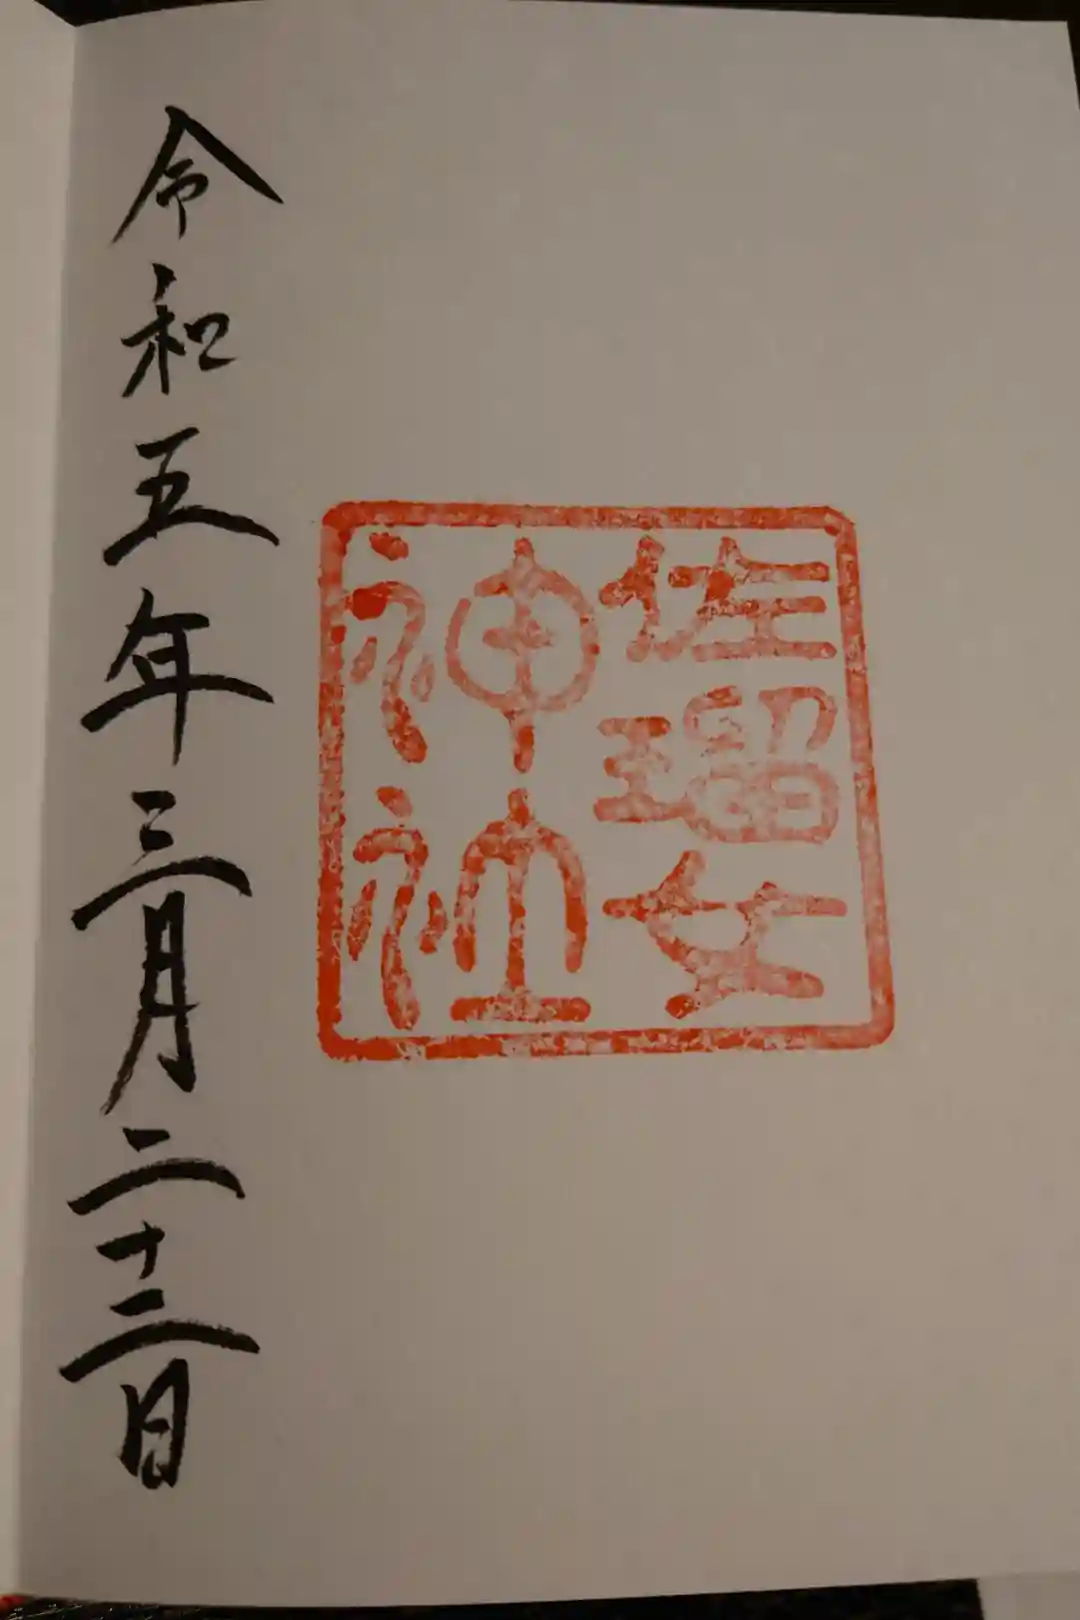 佐瑠女
神社
令和五年三月二十二日